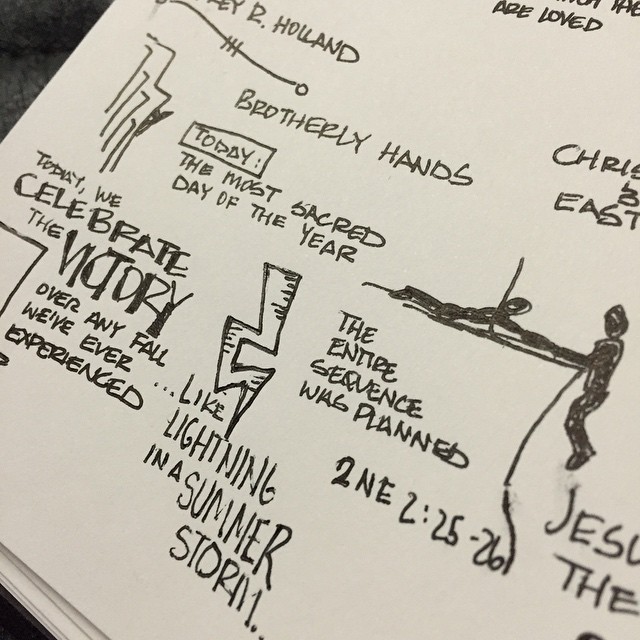 EY R. HOLLAND
ARE LOVED
BROTHERLY HANDS
TODAY:
THE MOST SACRED
DAY OF THE YEAR
TODAY, WE
CELEBRATE
THE VICTORY
OVER ANY FALL
WE'VE EVER
EXPERIENCED
...LIKE
LIGHTNING
IN A SUMMER
STORM...
THE
ENTIRE
SEQUENCE
WAS PLANNED
2 NE 2:25-26
CHRIS
EAST
JESU
THE